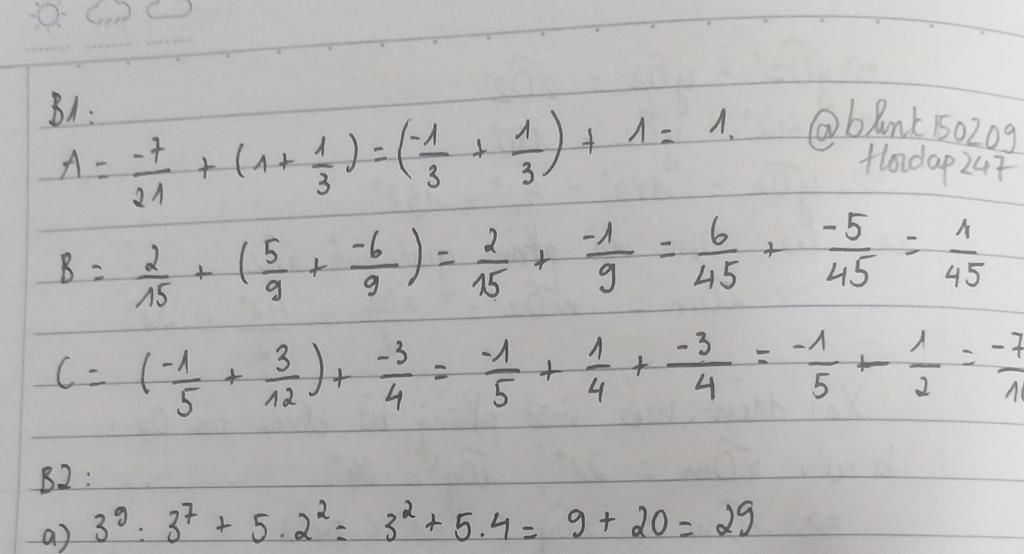 B1:
A = -7/21 + (1 + 1/3) = (-1/3 + 1/3) + 1 = 1.
@blink150209
Hoidap247
B = 2/15 + (5/9 + -6/9) = 2/15 + -1/9 = 6/45 + -5/45 = 1/45
C = (-1/5 + 3/12) + -3/4 = -1/5 + 1/4 + -3/4 = -1/5 - 1/2 = -7/10
B2:
a) 3⁹ : 3⁷ + 5.2² = 3² + 5.4 = 9 + 20 = 29